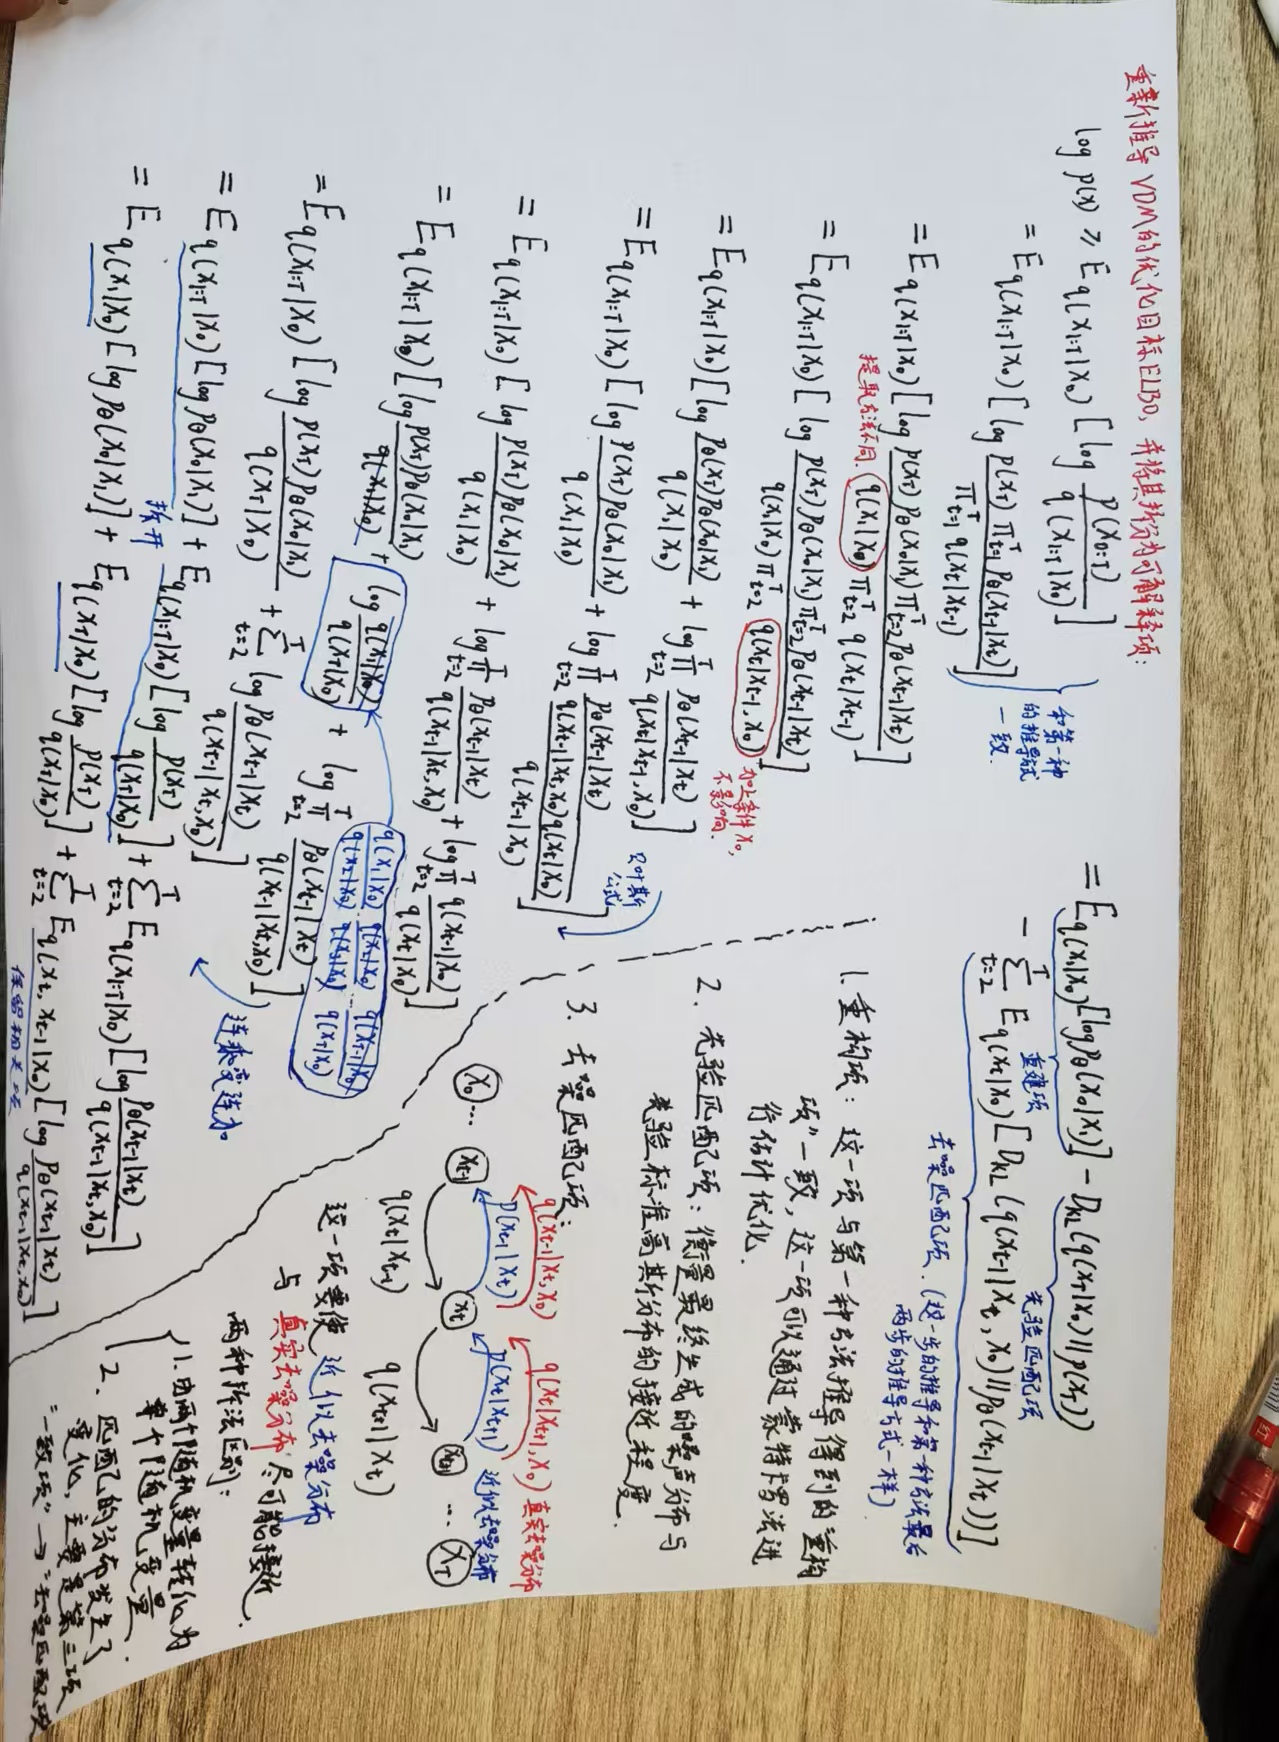 重新推导VDM的优化目标ELBO,并将其拆分为可解释项:
log p(x) ≥ E_{q(x_{1:T}|x_0)} [log \frac{p(x_{0:T})}{q(x_{1:T}|x_0)}]
= E_{q(x_{1:T}|x_0)} [log \frac{p(x_T) ∏_{t=1}^{T} p_θ(x_{t-1}|x_t)}{∏_{t=1}^{T} q(x_t|x_{t-1})}]
和第一种
的推导式
一致.
= E_{q(x_{1:T}|x_0)} [log \frac{p(x_T) p_θ(x_0|x_1) ∏_{t=2}^{T} p_θ(x_{t-1}|x_t)}{q(x_1|x_0) ∏_{t=2}^{T} q(x_t|x_{t-1})}]
提取方法不同.
= E_{q(x_{1:T}|x_0)} [log \frac{p(x_T) p_θ(x_0|x_1) ∏_{t=2}^{T} p_θ(x_{t-1}|x_t)}{q(x_1|x_0) ∏_{t=2}^{T} q(x_t|x_{t-1}, x_0)}]
加上条件x_0,
不影响.
= E_{q(x_{1:T}|x_0)} [log \frac{p_θ(x_T) p_θ(x_0|x_1)}{q(x_1|x_0)} + log ∏_{t=2}^{T} \frac{p_θ(x_{t-1}|x_t)}{q(x_t|x_{t-1}, x_0)}]
贝叶斯
公式
= E_{q(x_{1:T}|x_0)} [log \frac{p(x_T) p_θ(x_0|x_1)}{q(x_1|x_0)} + log ∏_{t=2}^{T} \frac{p_θ(x_{t-1}|x_t)}{\frac{q(x_{t-1}|x_t, x_0) q(x_t|x_0)}{q(x_{t-1}|x_0)}}]
= E_{q(x_{1:T}|x_0)} [log \frac{p(x_T) p_θ(x_0|x_1)}{q(x_1|x_0)} + log ∏_{t=2}^{T} \frac{p_θ(x_{t-1}|x_t)}{q(x_{t-1}|x_t, x_0)} + log ∏_{t=2}^{T} \frac{q(x_{t-1}|x_0)}{q(x_t|x_0)}]
= E_{q(x_{1:T}|x_0)} [log \frac{p(x_T) p_θ(x_0|x_1)}{q(x_1|x_0)} + log \frac{q(x_1|x_0)}{q(x_T|x_0)} + log ∏_{t=2}^{T} \frac{p_θ(x_{t-1}|x_t)}{q(x_{t-1}|x_t, x_0)}]
\frac{q(x_1|x_0)}{q(x_2|x_0)} \frac{q(x_2|x_0)}{q(x_3|x_0)} \frac{q(x_{T-1}|x_0)}{q(x_T|x_0)}
= E_{q(x_{1:T}|x_0)} [log \frac{p(x_T) p_θ(x_0|x_1)}{q(x_T|x_0)} + ∑_{t=2}^{T} log \frac{p_θ(x_{t-1}|x_t)}{q(x_{t-1}|x_t, x_0)}]
连乘变连加
= E_{q(x_{1:T}|x_0)} [log p_θ(x_0|x_1)] + E_{q(x_{1:T}|x_0)} [log \frac{p(x_T)}{q(x_T|x_0)}] + ∑_{t=2}^{T} E_{q(x_{1:T}|x_0)} [log \frac{p_θ(x_{t-1}|x_t)}{q(x_{t-1}|x_t, x_0)}]
拆开
= E_{q(x_1|x_0)} [log p_θ(x_0|x_1)] + E_{q(x_T|x_0)} [log \frac{p(x_T)}{q(x_T|x_0)}] + ∑_{t=2}^{T} E_{q(x_t, x_{t-1}|x_0)} [log \frac{p_θ(x_{t-1}|x_t)}{q(x_{t-1}|x_t, x_0)}]
保留相关项
= E_{q(x_1|x_0)} [log p_θ(x_0|x_1)] - D_{KL}(q(x_T|x_0) || p(x_T))
重建项
先验匹配项
- ∑_{t=2}^{T} E_{q(x_t|x_0)} [D_{KL}(q(x_{t-1}|x_t, x_0) || p_θ(x_{t-1}|x_t))]
去噪匹配项.(这一步的推导和第一种方法最后
两步的推导方式一样)
1. 重构项: 这一项与第一种方法推导得到的“重构
项”一致, 这一项可以通过蒙特卡罗法进
行估计优化.
2. 先验匹配项: 衡量最终生成的噪声分布与
先验标准高斯分布的接近程度.
3. 去噪匹配项:
q(x_{t-1}|x_t, x_0) q(x_t|x_{t+1}, x_0) 真实去噪分布
p(x_{t-1}|x_t) p(x_t|x_{t+1}) 近似去噪分布
x_0 … x_{t-1} x_t x_{t+1} … x_T
q(x_t|x_{t-1}) q(x_{t+1}|x_t)
这一项要使 近似去噪分布
与 真实去噪分布 尽可能接近.
两种拆法区别:
1. 由两个随机变量转化为
单个随机变量.
2. 匹配的分布发生了
变化, 主要是第三项
“一致项” → “去噪匹配项